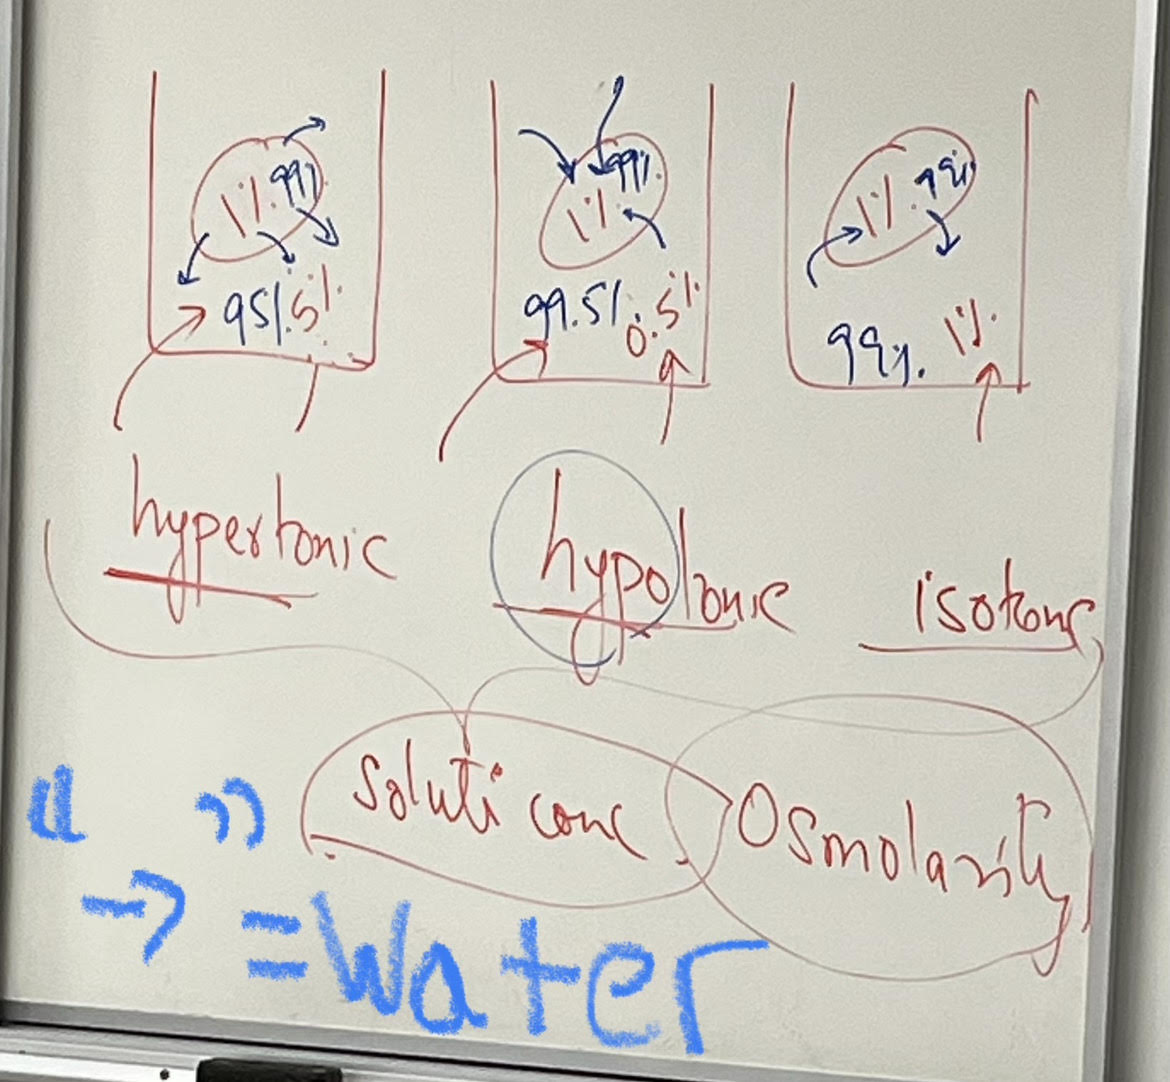 1% 99% 99% 1% 1% 99%
95% 5% 99.5% 0.5% 99% 1%
hypertonic hypotonic isotonic
Soluti conc Osmolarity
" "
→ = Water